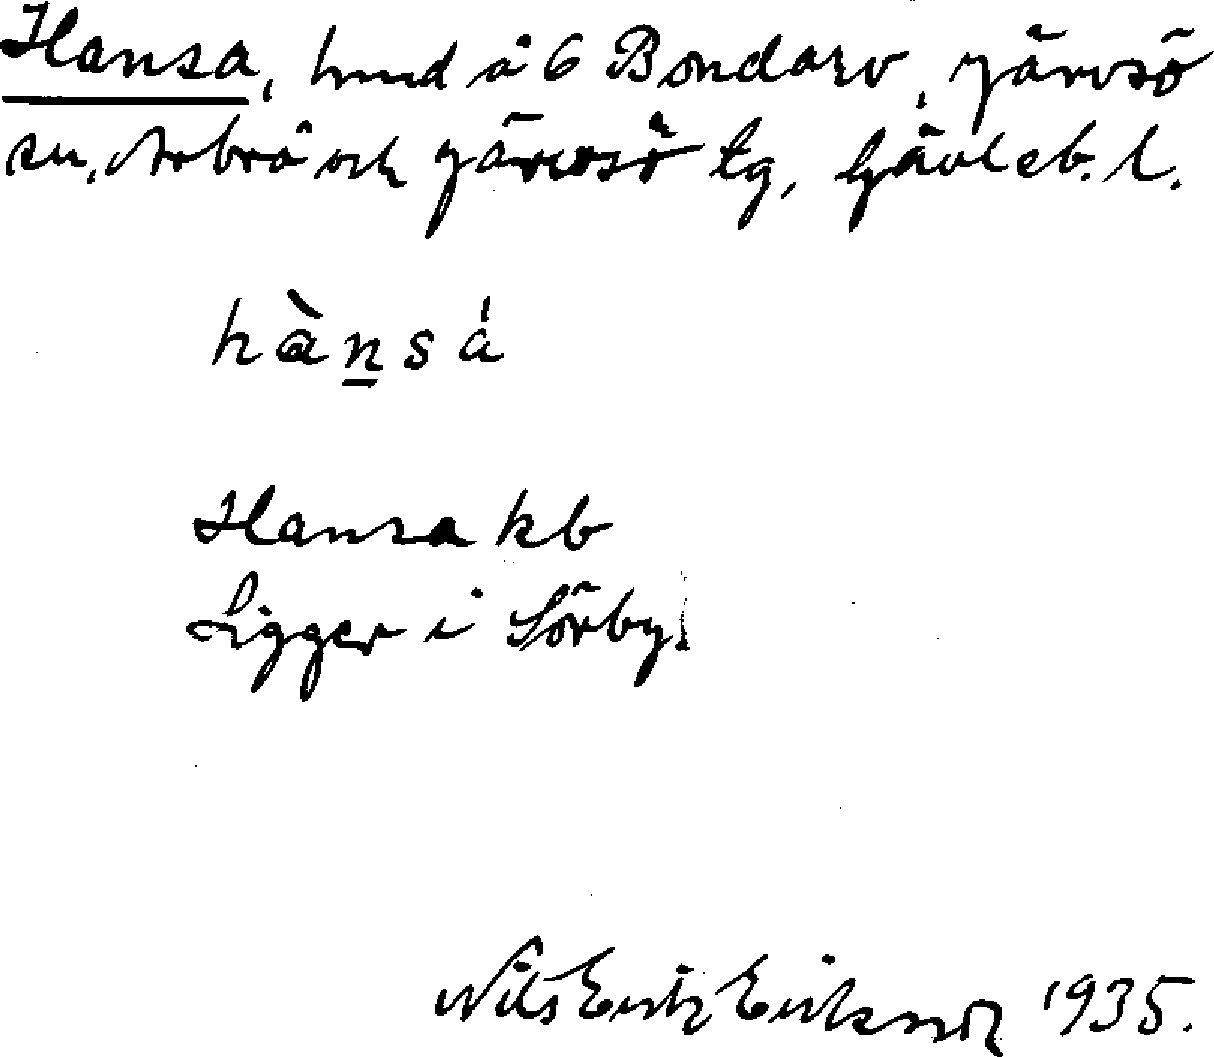 Hansa, hmd å 6 Bondarv, Järvsö
sn, Arbrå och Järvsö tg, Gävleb. l.
hàn̲sá
Hansa kb
Ligger i Sörby.
Nils Eric Eriksson 1935.